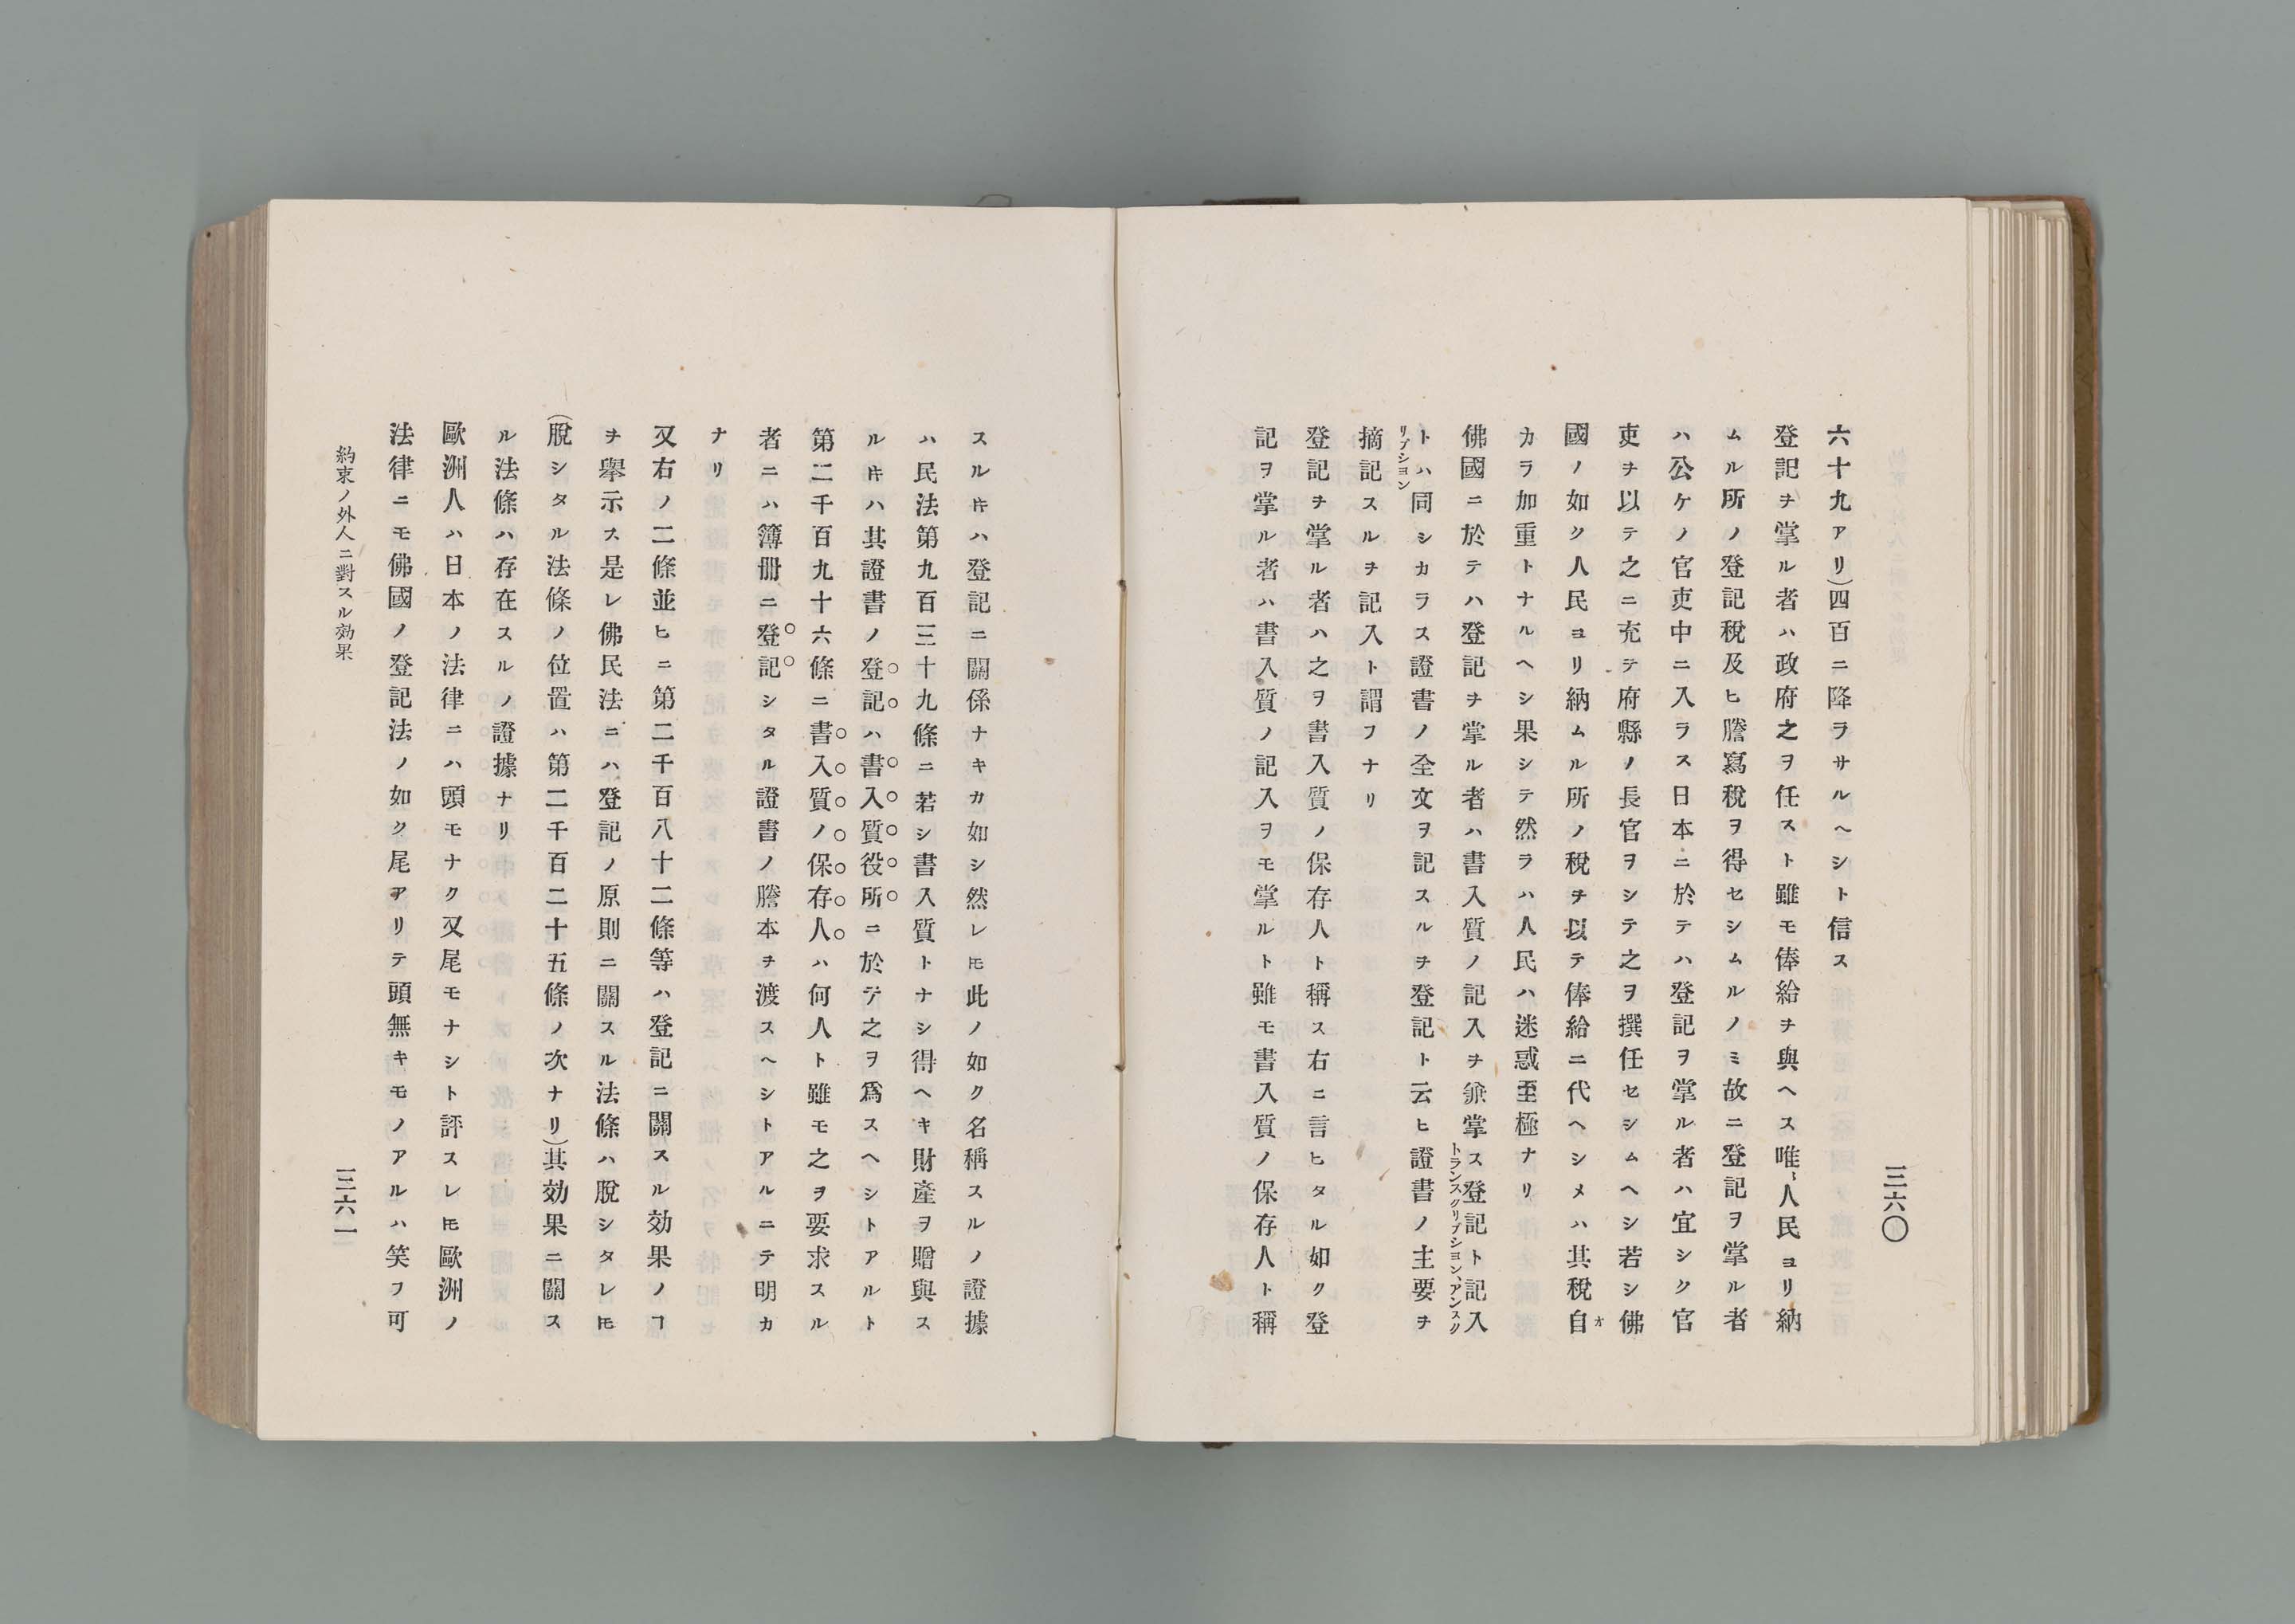 三六〇
六十九アリ)四百ニ降ラサルヘシト信ス
登記ヲ掌ル者ハ政府之ヲ任スト雖モ俸給ヲ與ヘス唯〻人民ヨリ納
ムル所ノ登記稅及ヒ謄寫稅ヲ得セシムルノミ故ニ登記ヲ掌ル者
ハ公ケノ官吏中ニ入ラス日本ニ於テハ登記ヲ掌ル者ハ宜シク官
吏ヲ以テ之ニ充テ府縣ノ長官ヲシテ之ヲ撰任セシムヘシ若シ佛
國ノ如ク人民ヨリ納ムル所ノ稅ヲ以テ俸給ニ代ヘシメハ其稅自オ
カラ加重トナルヘシ果シテ然ラハ人民ハ迷惑至極ナリ
佛國ニ於テハ登記ヲ掌ル者ハ書入質ノ記入ヲ兼掌ス登記ト記入
トランスクリプション、アンスク
トハ同シカラス證書ノ全文ヲ記スルヲ登記ト云ヒ證書ノ主要ヲ
リプション
摘記スルヲ記入ト謂フナリ
登記ヲ掌ル者ハ之ヲ書入質ノ保存人ト稱ス右ニ言ヒタル如ク登
記ヲ掌ル者ハ書入質ノ記入ヲモ掌ルト雖モ書入質ノ保存人ト稱
スルトキハ登記ニ關係ナキカ如シ然レトモ此ノ如ク名稱スルノ證據
ハ民法第九百三十九條ニ若シ書入質トナシ得ヘキ財產ヲ贈與ス
ルトキハ其證書ノ登記ハ書入質役所ニ於テ之ヲ爲スヘシトアルト
第二千百九十六條ニ書入質ノ保存人ハ何人ト雖モ之ヲ要求スル
者ニハ簿冊ニ登記シタル證書ノ謄本ヲ渡スヘシトアルニテ明カ
ナリ
又右ノ二條並ヒニ第二千百八十二條等ハ登記ニ關スル効果ノヿ
ヲ擧示ス是レ佛民法ニハ登記ノ原則ニ關スル法條ハ脫シタレトモ
(脫シタル法條ノ位置ハ第二千百二十五條ノ次ナリ)其効果ニ關ス
ル法條ハ存在スルノ證據ナリ
歐洲人ハ日本ノ法律ニハ頭モナク又尾モナシト評スレトモ歐洲ノ
法律ニモ佛國ノ登記法ノ如ク尾アリテ頭無キモノアルハ笑フ可
約束ノ外人ニ對スル効果
三六一